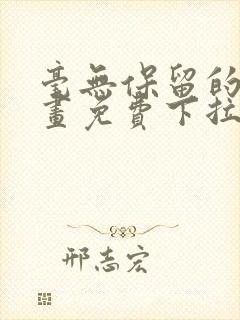 毫無保留的
畫免費下拉
邢志宏